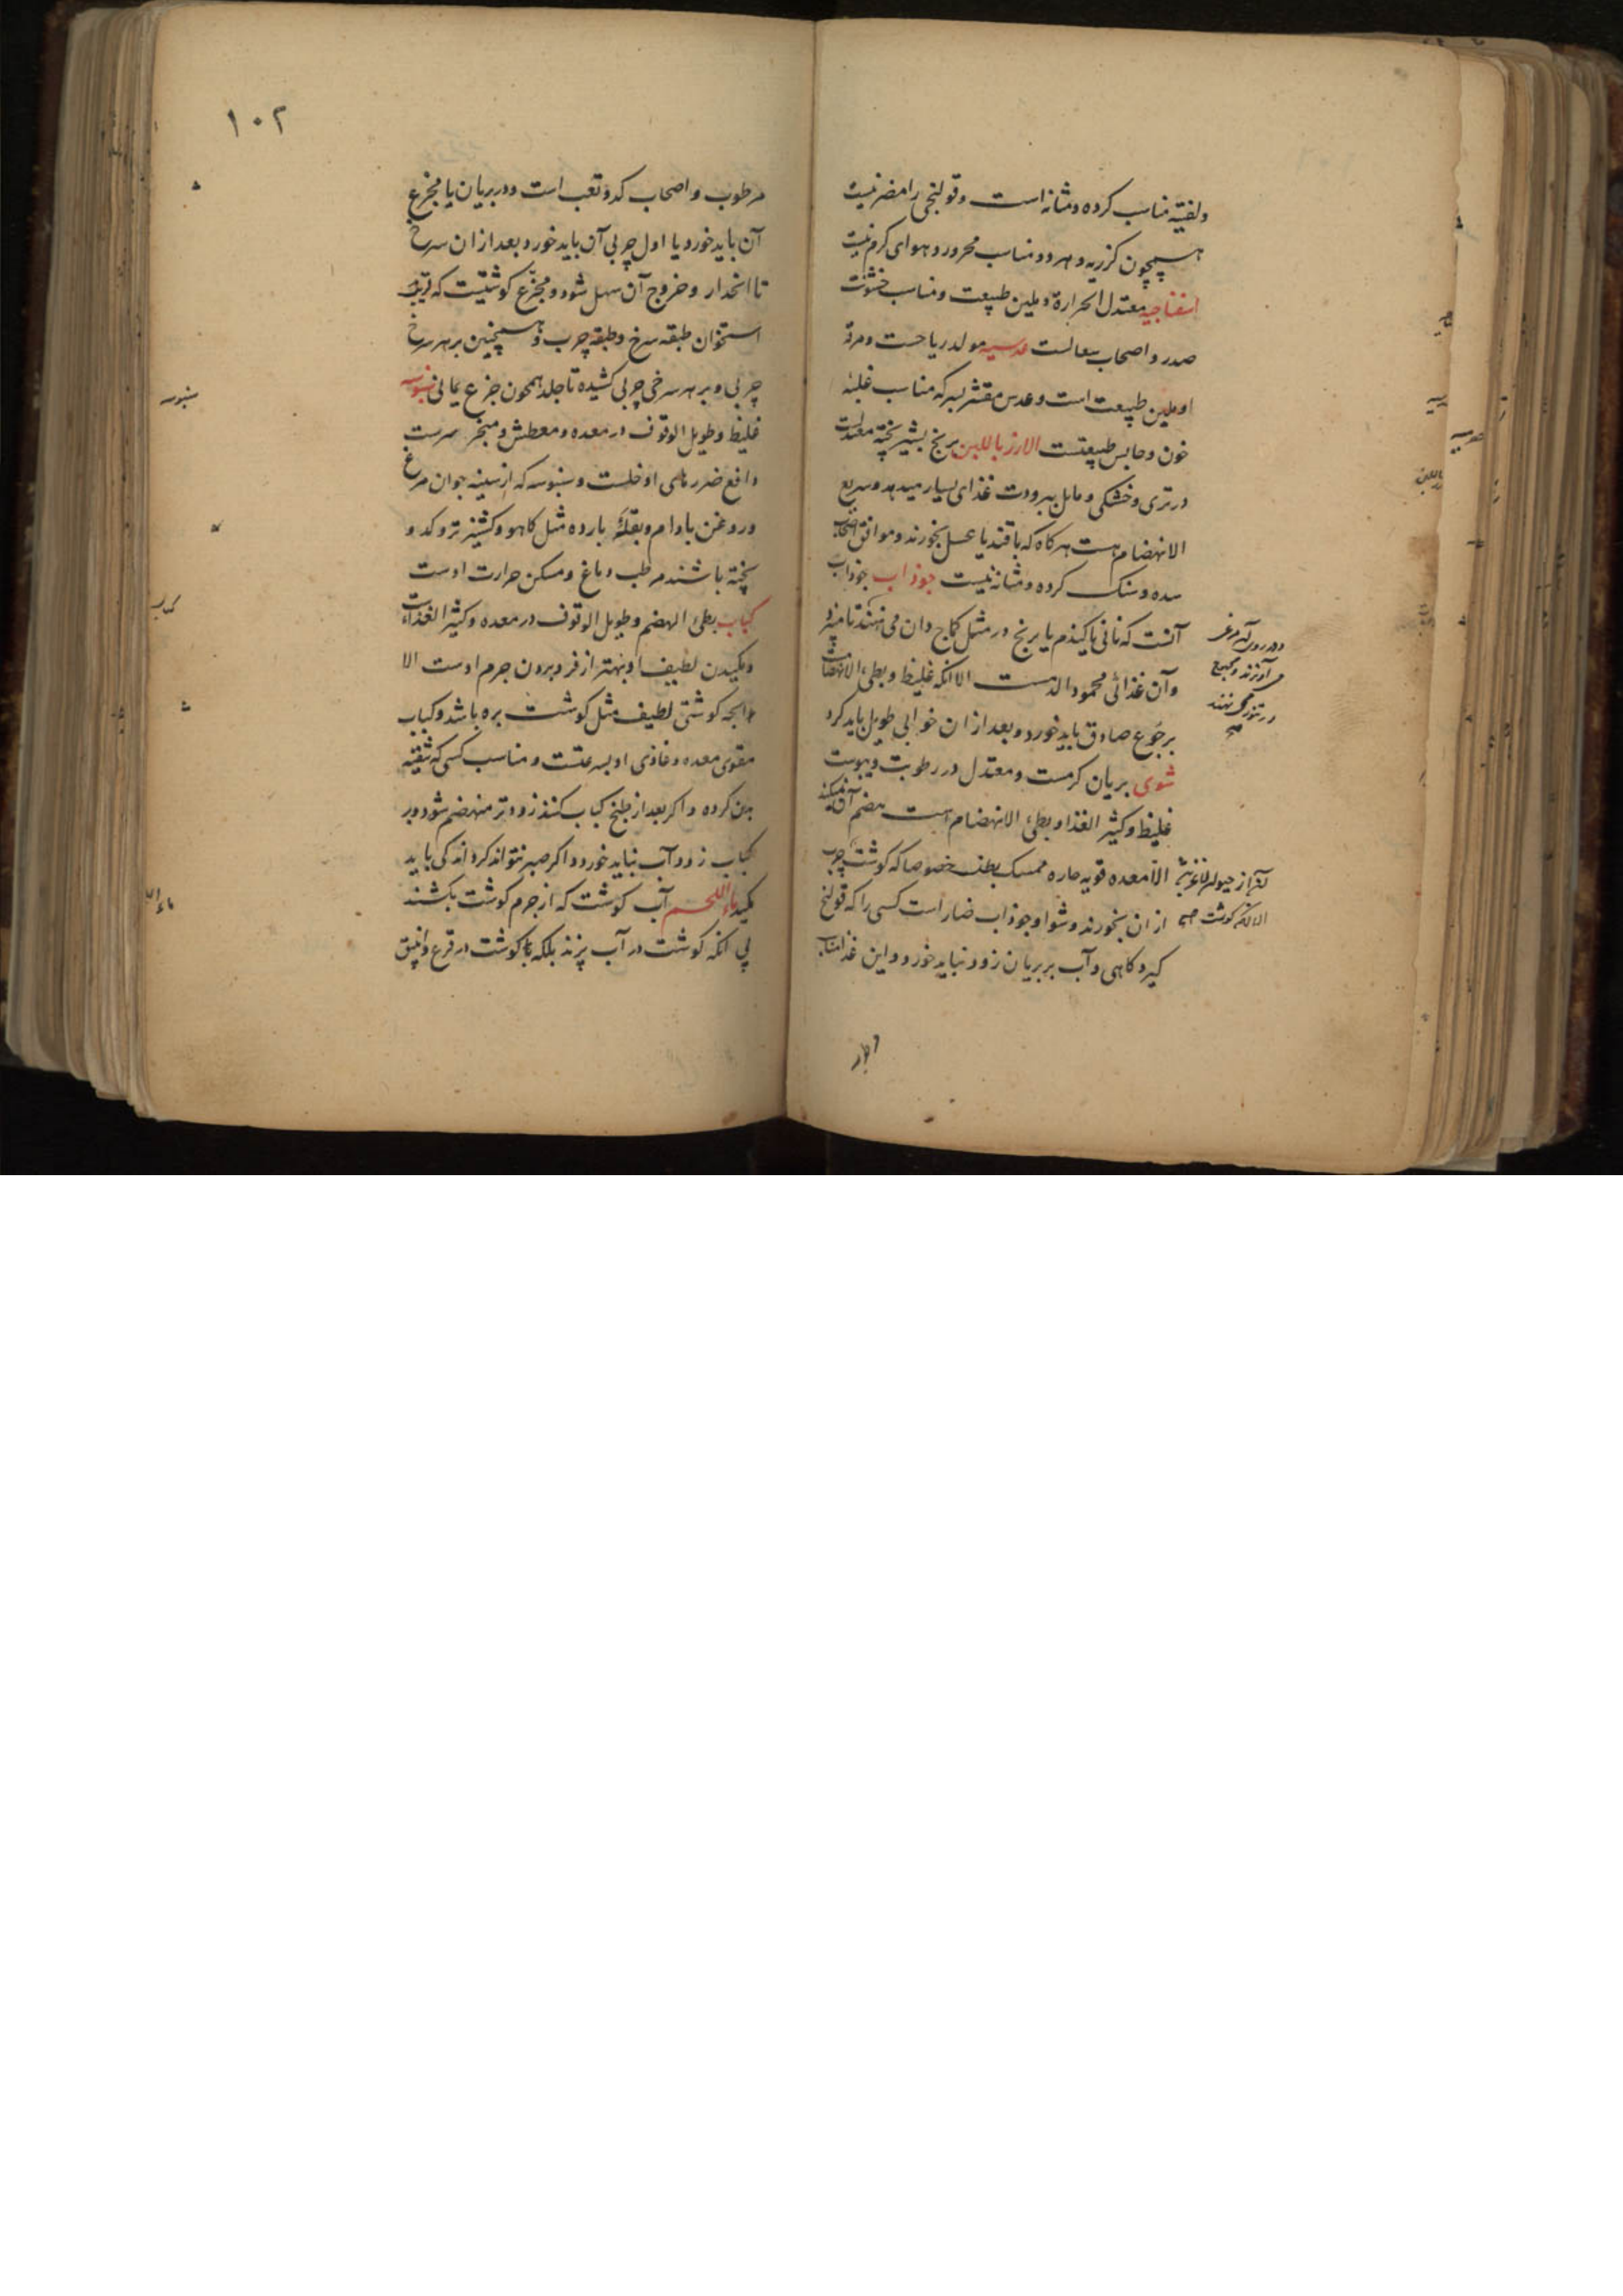 ولفتیه مناسب کرده و مثانه است و قولنجی را مضر نیست
همچون کزریه و هر دو مناسب محرور و هوای کرم نیست
اسفناجیه معتدل الحرارة و ملین طبیعت و مناسب خشونت
صدر و اصحاب سعالست عدسیه مولد ریاحست و مرقه
او ملین طبیعت است و عدس مقشر بسرکه مناسب غلبه
خون و حابس طبیعتست الارز باللبن برنج بشیر پخته معتدلست
در تری و خشکی و مایل ببرودت غذای بسیار میدهد و سریع
الانهضام است هرکاه که با قند یا عسل بخورند و موافق اصحاب
سده و سنک کرده و مثانه نیست جوذاب جوذاب
آنست که نانی یا کندم یا برنج در مثل کماج دان می نهند تا پزد
و در روی آن مرغی
می آویزند و جمیع
در تنور می نهند
صح
و آن غذائی محمود الدست الا انکه غلیظ و بطیء الانهضامست
بر جوع صادق باید خورد و بعد از ان خوابی طویل باید کرد
شوی بریان کرمست و معتدل در رطوبت و یبوست
غلیظ و کثیر الغذا و بطیء الانهضام است هضم آن نمیکند
الا معده قویه حاره ممسک بطنست خصوصا که کوشت چرب
الا انکه کوشت صح
از ان بخورند و شوا و جوذاب ضار است کسی را که قولنج
کیرد کاهی و آب بر بریان زود نباید خورد و این غذا مناسب
مرطوب و اصحاب کد و تعب است و در بریان یا مجزع
۱۰۲
آن باید خورد یا اول چربی آن باید خورد و بعد از ان سرخ
تا انحدار و خروج آن سهل شود و مجزع کوشتیست که قریب
استخوان طبقه سرخ و طبقه چرب و همچنین بر هر سرخ
چربی و بر هر سرخی چربی کشیده تا جلد همچون جزع یمانی سنبوسه
سنبوسه
غلیظ و طویل الوقوف در معده و معطش و مبخر سرست
دافع ضررهای او خلست و سنبوسه که از سینه جوان مرغ
و روغن بادام و بقلهٔ بارده مثل کاهو و کشنیز تر و کدو
پخته باشند مرطب دماغ و مسکن حرارت اوست
کباب بطیء الهضم و طویل الوقوف در معده و کثیر الغذاست
کباب
و مکیدن لطیف او بهتر از فرو بردن جرم اوست الا
انچه کوشتی لطیف مثل کوشت بره باشد و کباب
مقوی معده و غاذی او بسرعتست و مناسب کسی که تنقیه
بدن کرده و اکر بعد از طبخ کباب کنند زودتر منهضم شود و بر
کباب زود آب نباید خورد و اکر صبر نتواند کرد اندکی باید
مکید ماء اللحم آب کوشت که از جرم کوشت بکشند
بی انکه کوشت در آب پزند بلکه با کوشت در قرع و انبیق